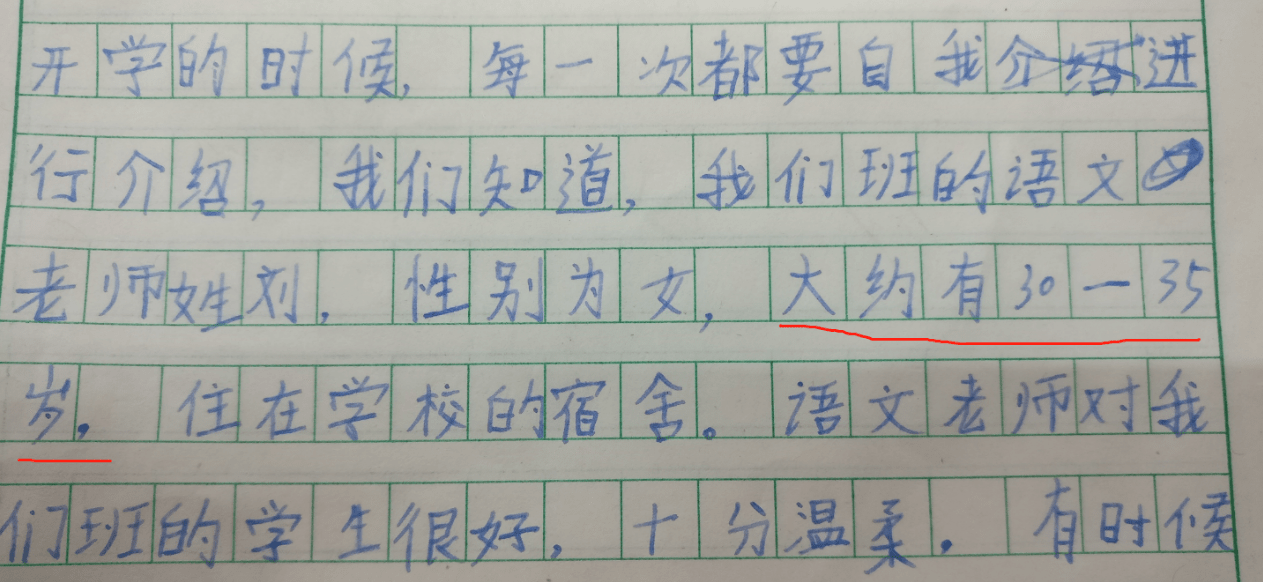 开学的时候，每一次都要自我介绍进
行介绍，我们知道，我们班的语文
老师姓刘，性别为女，大约有30—35
岁，住在学校的宿舍。语文老师对我
们班的学生很好，十分温柔。有时候